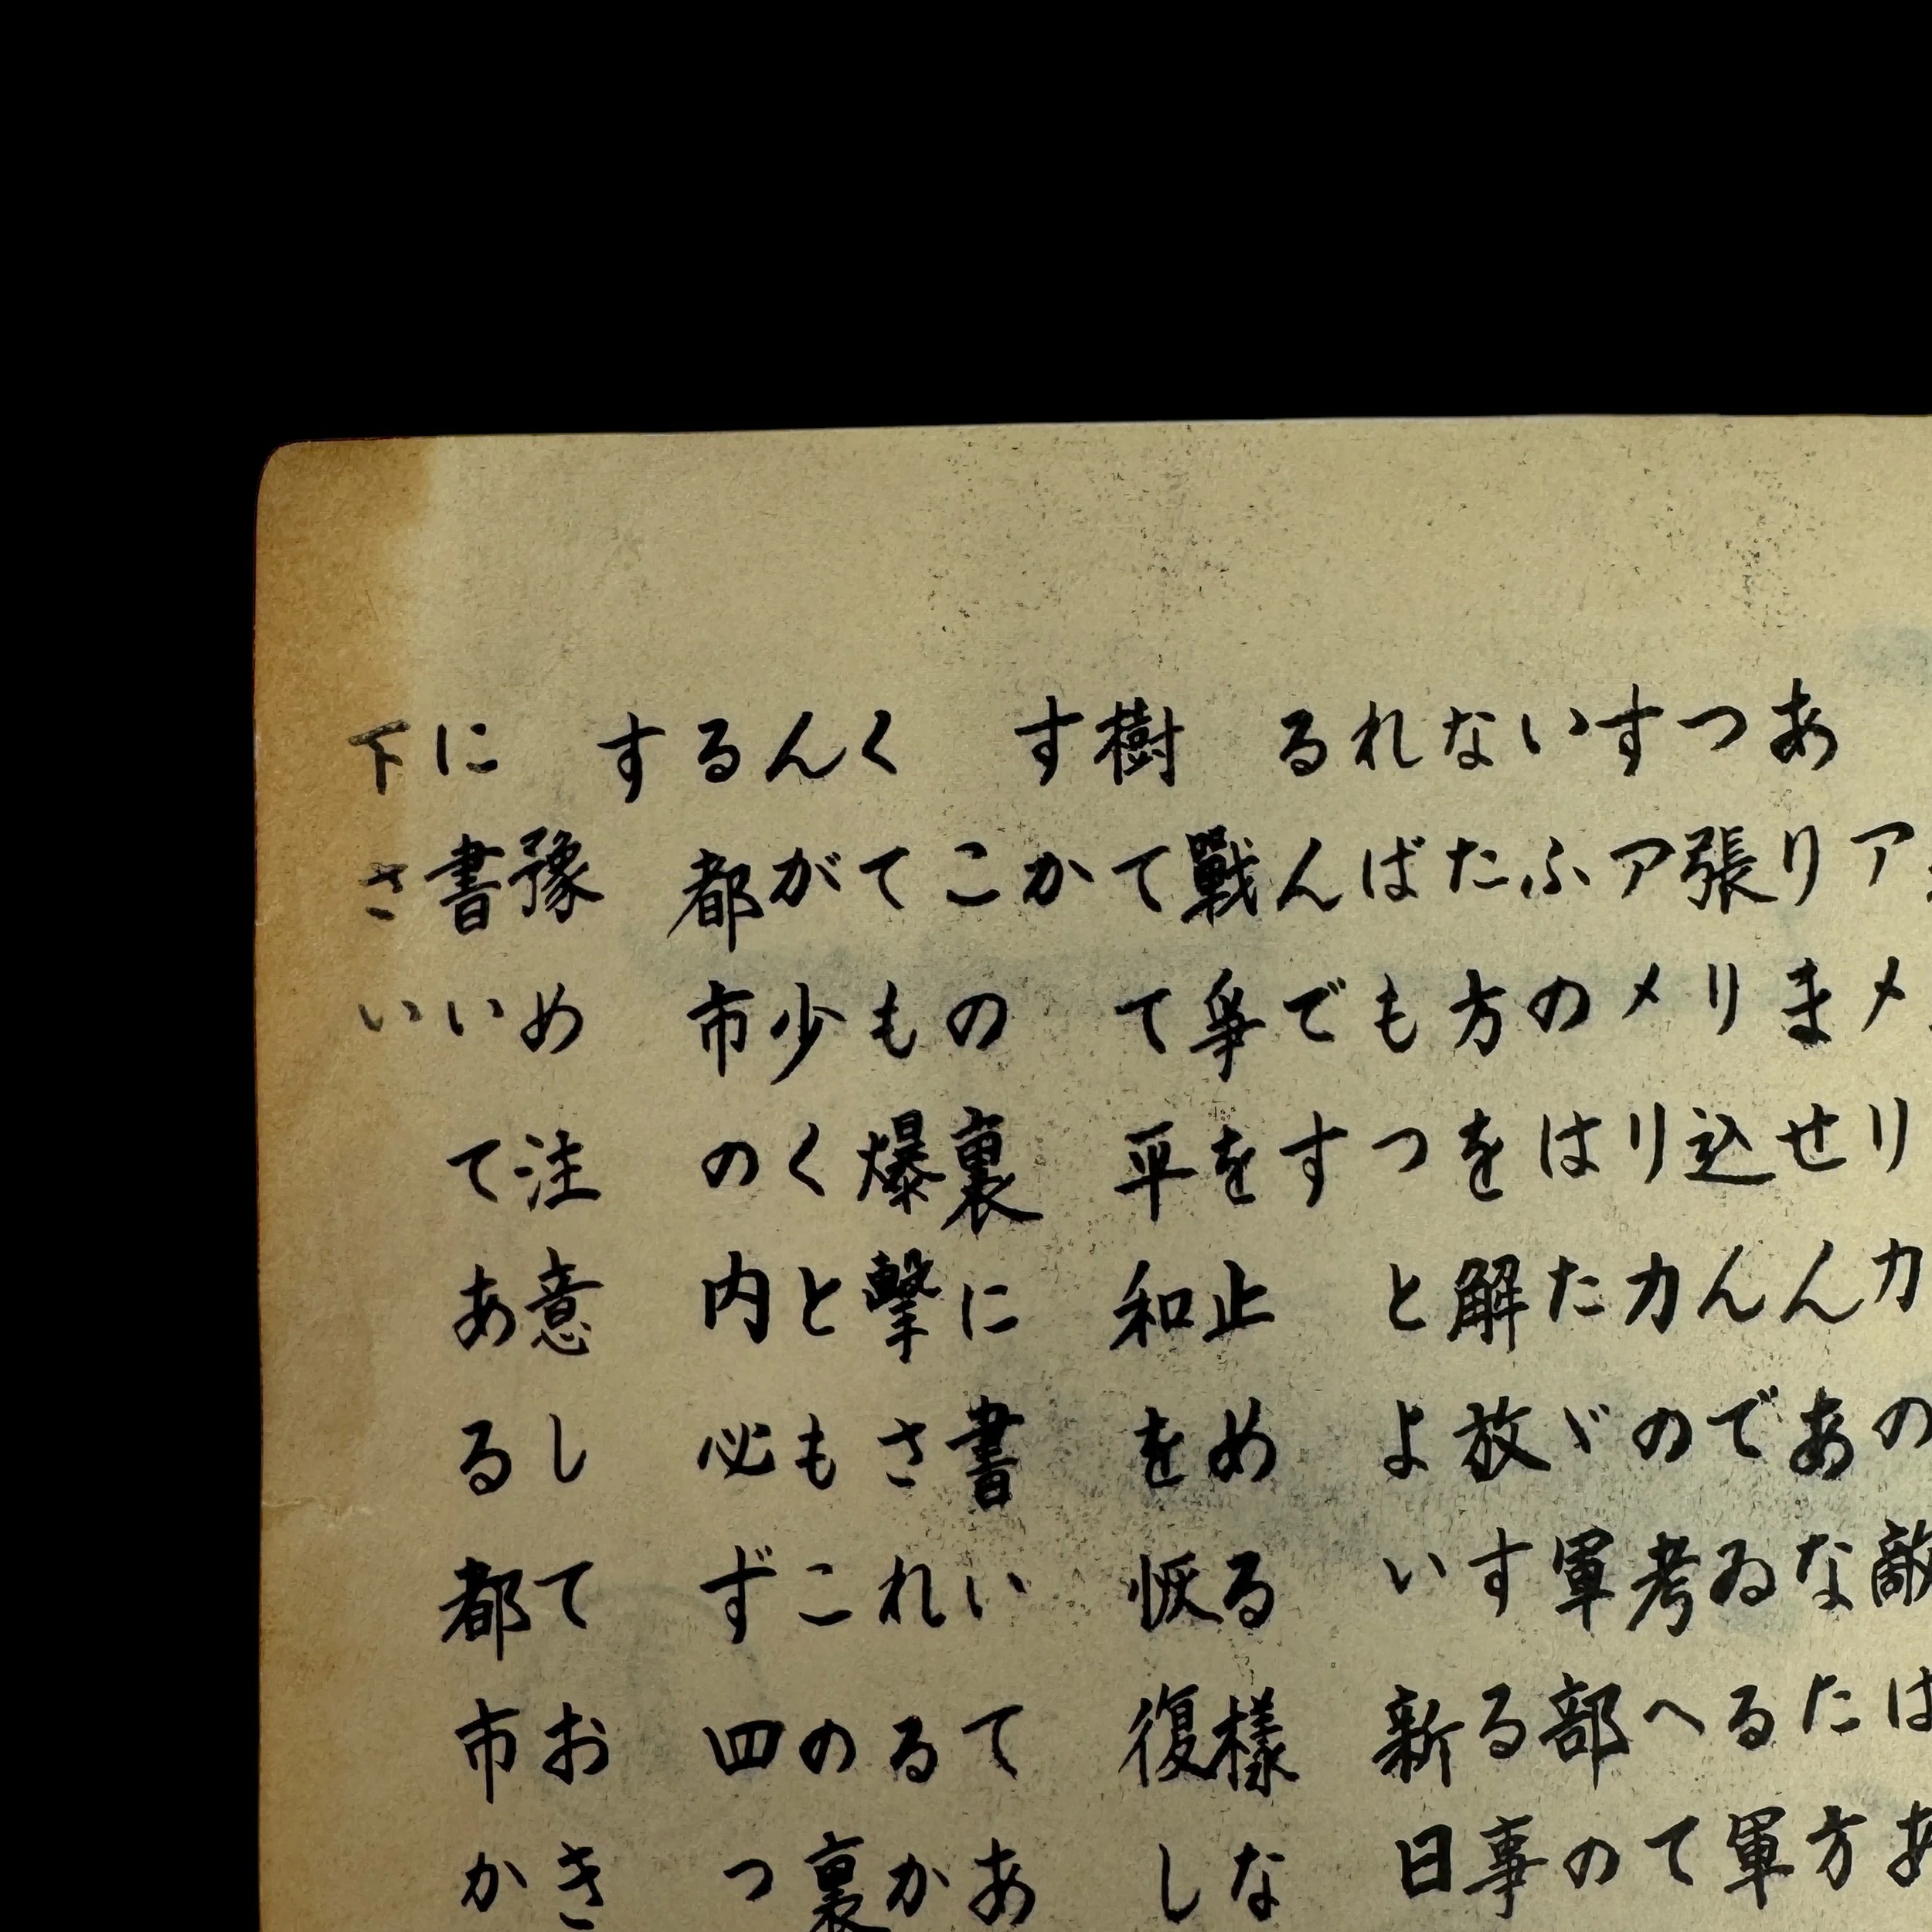 アメリカの敵はあ
ありません あなた方
つ張り込んでゐる軍
すアメリカの考へて
いふのはたゞ軍部の
なた方を解放する事
ればもつとよい新日
るんです
戰爭を止める樣な
樹てて平和を恢復し
すか
この裏に書いてあ
くても爆撃されるか
んが少くともこの裏
る都市の内必ず四つ
す
豫め注意しておき
に書いてある都市か
下さい